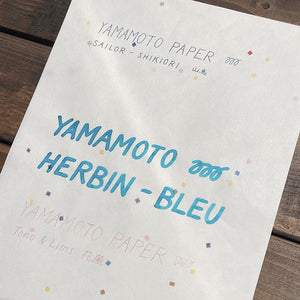 YAMAMOTO PAPER
SAILOR - SHIKIORI 山鳥
YAMAMOTO
HERBIN - BLEU
YAMAMOTO PAPER
Tono & Lims